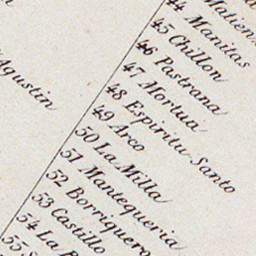 Agustin
44 Manilas
45 Chillon
46 Pastrana
47 Mortua
48 Espiritu Santo
49 Arco
50 La Milla
51 Mantequeria
52 Borriquero
53 Castillo
54 La
55